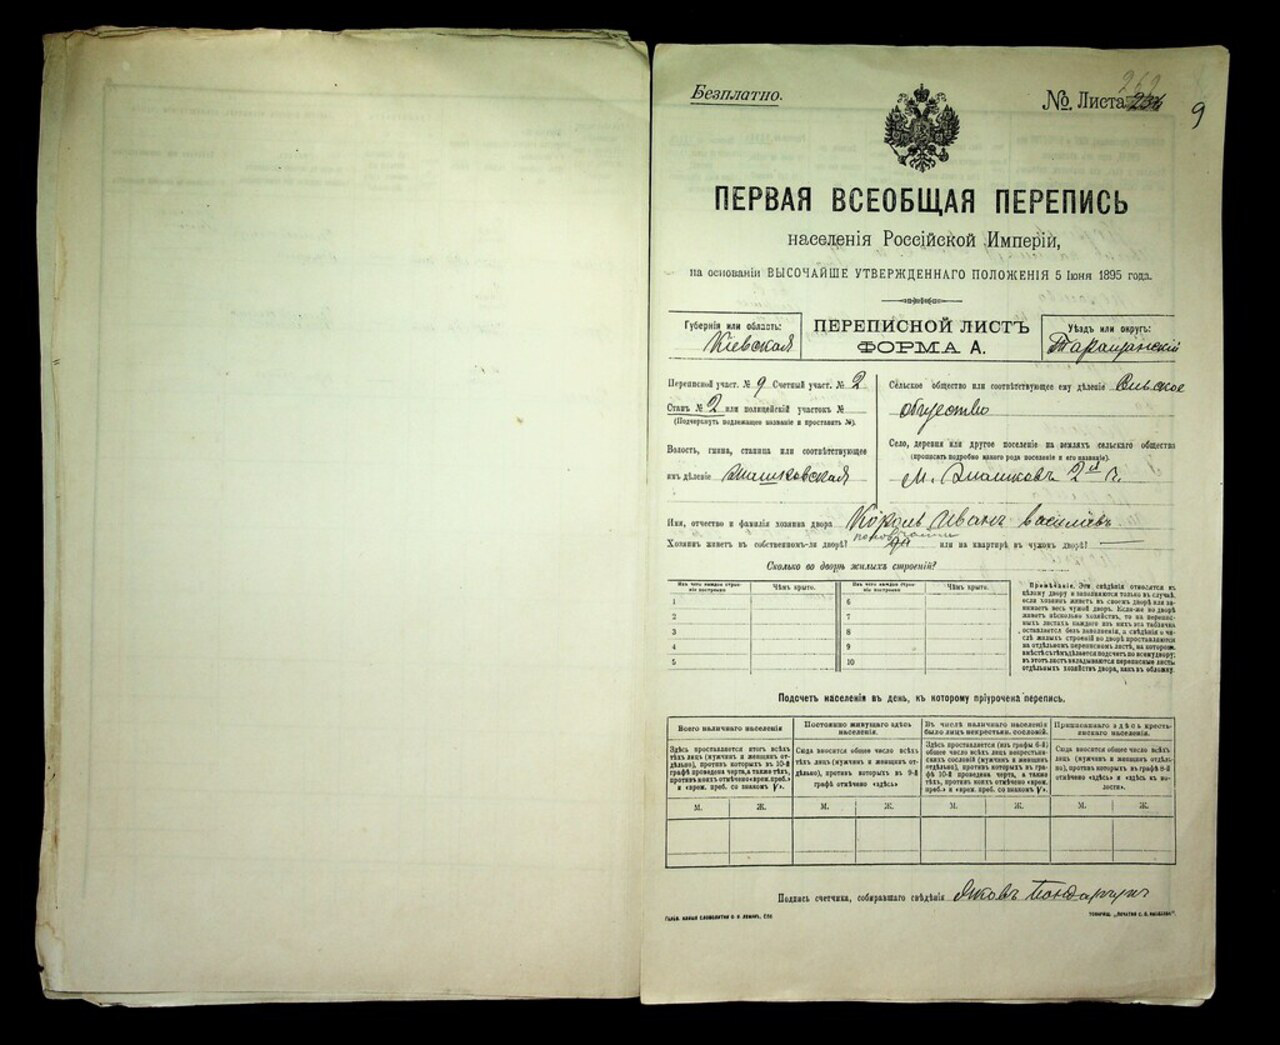 Безплатно.
№ Листа
9
ПЕРВАЯ ВСЕОБЩАЯ ПЕРЕПИСЬ
населенія Россійской Имперіи,
на основаніи ВЫСОЧАЙШЕ УТВЕРЖДЕННАГО ПОЛОЖЕНІЯ 5 Іюня 1895 года.
Губернія или область:
Кіевская
ПЕРЕПИСНОЙ ЛИСТЪ
ФОРМА А.
Уѣздъ или округъ:
Таращанскій
Переписной участ. № 9 Счетный участ. № 2
Станъ № 2 или полицейскій участокъ №
(Подчеркнуть подлежащее названіе и проставить №).
Волость, гмина, станица или соотвѣтствующее
имъ дѣленіе
Сельское общество или соотвѣтствующее ему дѣленіе
общество
Село, деревня или другое поселеніе на земляхъ сельскаго общества
(прописать подробно какого рода поселеніе и его названіе).
М. 2й ч.
Имя, отчество и фамилія хозяина двора Король Иванъ Васильевъ
Хозяинъ живетъ въ собственномъ-ли дворѣ? да или на квартирѣ въ чужомъ дворѣ?
Сколько во дворѣ жилыхъ строеній?
Изъ чего каждое строеніе построено
Чѣмъ крыто.
Изъ чего каждое строеніе построено
Чѣмъ крыто.
1 6
2 7
3 8
4 9
5 10
Примѣчаніе. Эти свѣдѣнія относятся къ
цѣлому двору и заполняются только въ случаѣ,
если хозяинъ живетъ въ своемъ дворѣ или занимаетъ
весь чужой дворъ. Если-же во дворѣ
живетъ нѣсколько хозяйствъ, то на переписныхъ
листахъ каждаго изъ нихъ эта табличка
оставляется безъ заполненія, а свѣдѣнія о числѣ
жилыхъ строеній во дворѣ проставляются
на отдѣльномъ переписномъ листѣ, на которомъ
вмѣстѣ съ тѣмъ дѣлается подсчетъ по всему двору;
въ этотъ листъ вкладываются переписные листы
отдѣльныхъ хозяйствъ двора, какъ въ обложку.
Подсчетъ населенія въ день, къ которому пріурочена перепись.
Всего наличнаго населенія
Здѣсь проставляется итогъ всѣхъ
тѣхъ лицъ (мужчинъ и женщинъ отдѣльно),
противъ которыхъ въ 10-й
графѣ проведена черта, а также тѣхъ,
противъ коихъ отмѣчено «врем. преб.»
и «врем. преб. со знакомъ V».
Постоянно живущаго здѣсь
населенія.
Сюда вносится общее число всѣхъ
тѣхъ лицъ (мужчинъ и женщинъ отдѣльно),
противъ которыхъ въ 9-й
графѣ отмѣчено «здѣсь»
Въ числѣ наличнаго населенія
было лицъ некрестьян. сословій.
Здѣсь проставляется (изъ графы 6-й)
общее число всѣхъ лицъ некрестьянскихъ
сословій (мужчинъ и женщинъ
отдѣльно), противъ которыхъ въ графѣ
10-й проведена черта, а также
тѣхъ, противъ коихъ отмѣчено «врем.
преб.» и «врем. преб. со знакомъ V».
Приписаннаго здѣсь крестьянскаго
населенія.
Сюда вносится общее число всѣхъ
лицъ (мужчинъ и женщинъ отдѣльно),
противъ которыхъ въ графѣ 8-й
отмѣчено «здѣсь» и «здѣсь къ волости».
М. Ж. М. Ж. М. Ж. М. Ж.
Подпись счетчика, собиравшаго свѣдѣнія Яковъ